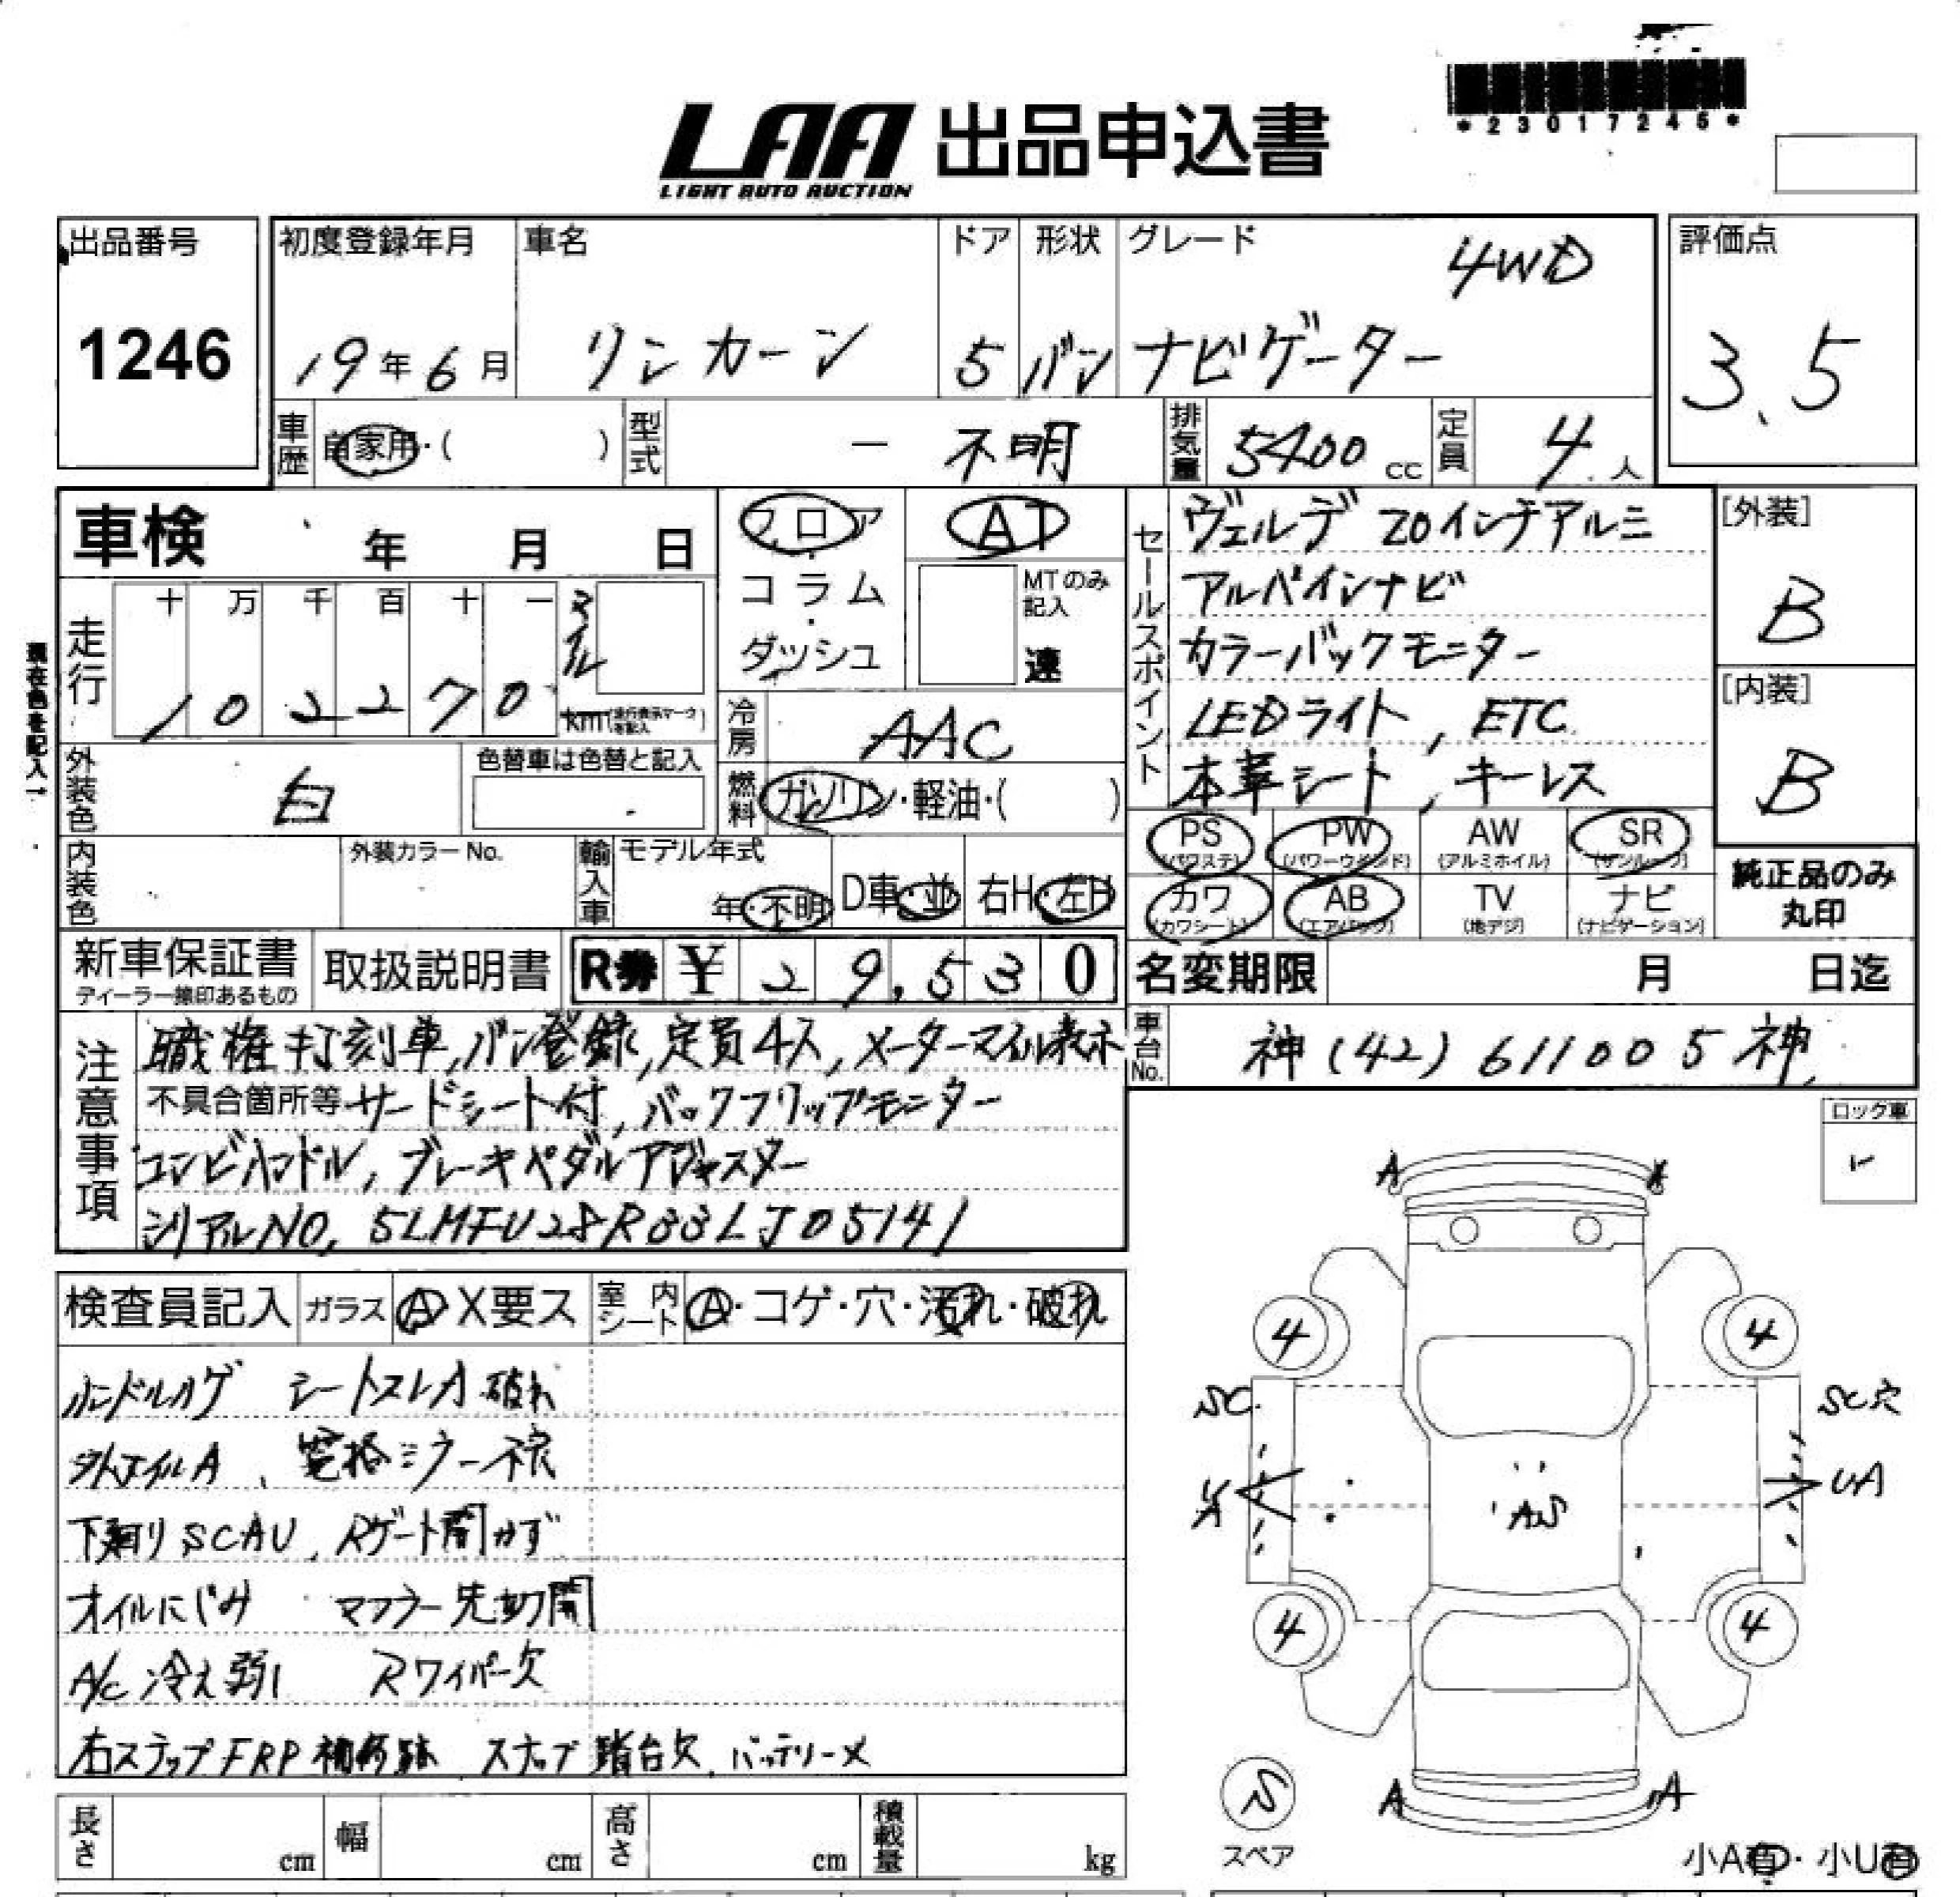 *23017245*
LAA 出品申込書
LIGHT AUTO AUCTION
出品番号
1246
初度登録年月
19年6月
車名
リンカーン
ドア
5
形状
バン
グレード
4WD
ナビゲーター
評価点
3.5
車歴
自家用・( )
型式
ー 不明
排気量
5400 cc
定員
4 人
車検 年 月 日
フロア・コラム・ダッシュ
AT
MTのみ記入
速
走行
十 万 千 百 十 一
102270
マイル
km(走行表示マーク等記入)
現在色を記入→
外装色
白
色替車は色替と記入
冷房
AAC
燃料
ガソリン・軽油・( )
内装色
外装カラーNo.
輸入車
モデル年式
年・不明
D車・並
右H・左H
セールスポイント
ヴェルデ 20インチアルミ
アルパインナビ
カラーバックモニター
LEDライト, ETC
本革シート, キーレス
[外装]
B
[内装]
B
PS (パワステ)
PW (パワーウインド)
AW (アルミホイル)
SR (サンルーフ)
カワ (カワシート)
AB (エアバック)
TV (地デジ)
ナビ (ナビゲーション)
純正品のみ
丸印
新車保証書
ディーラー捺印あるもの
取扱説明書
R券 ¥ 29,530
名変期限 月 日迄
車台No.
神(42)611005神
注意事項
職権打刻車,バン登録,定員4人,メーターマイル表示
不具合箇所等 サードシート付, バックフリップモニター
コンビハンドル, ブレーキペダルアジャスター
シリアルNO, 5LMFU28R33LJ05141
ロック車
検査員記入
ガラス
A X要ス
室内シート
A・コゲ・穴・汚れ・破れ
ハンドルハゲ シートスレA 破れ
アルミホイルA、電格ミラー不良
下廻りSCAU、Rゲート開かず
オイルにじみ マフラー先切開
A/C 冷え弱い Rワイパー欠
右ステップFRP補修跡、ステップ踏台欠、バッテリーメ
A
A
4
4
SC
SC穴
UA
UA
AS
4
4
A
A
S
スペア
小A有・小U有
長さ cm
幅 cm
高さ cm
積載量 kg